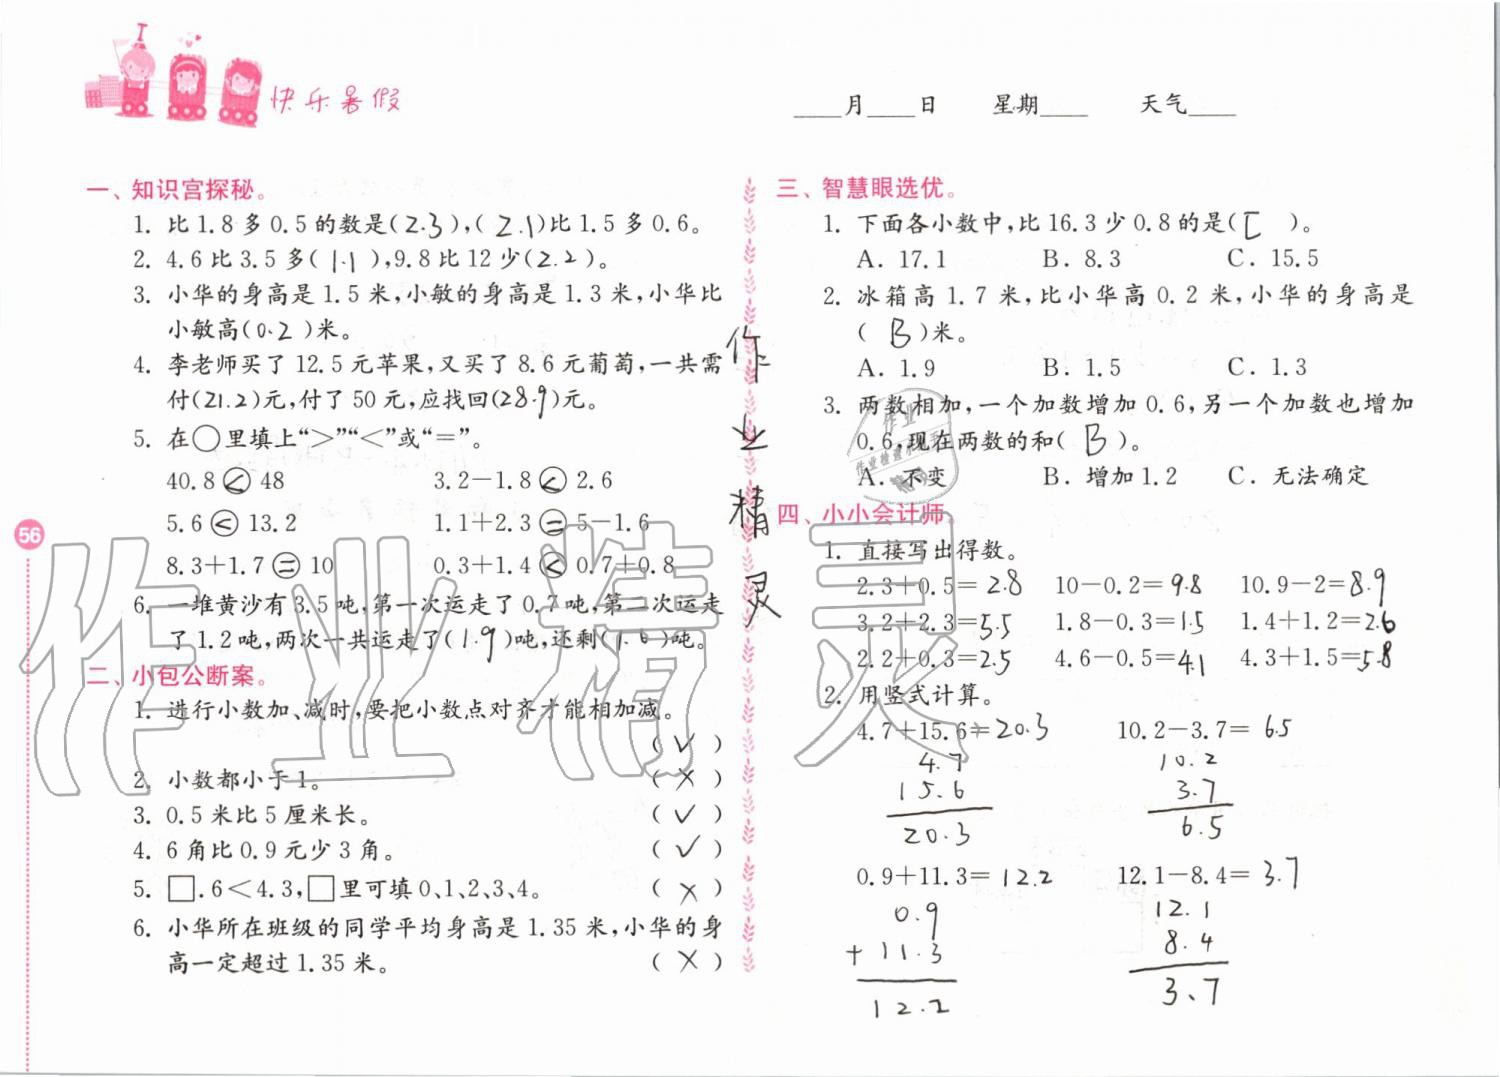 快乐暑假
____月____日 星期____ 天气____
一、知识宫探秘。
1. 比1.8多0.5的数是(2.3),(2.1)比1.5多0.6。
2. 4.6比3.5多(1.1),9.8比12少(2.2)。
3. 小华的身高是1.5米,小敏的身高是1.3米,小华比
小敏高(0.2)米。
4. 李老师买了12.5元苹果,又买了8.6元葡萄,一共需
付(21.2)元,付了50元,应找回(28.9)元。
5. 在○里填上“>”“<”或“=”。
40.8<48 3.2-1.8<2.6
5.6<13.2 1.1+2.3=5-1.6
8.3+1.7=10 0.3+1.4<0.7+0.8
6. 一堆黄沙有3.5吨,第一次运走了0.7吨,第二次运走
了1.2吨,两次一共运走了(1.9)吨,还剩(1.6)吨。
二、小包公断案。
1. 进行小数加、减时,要把小数点对齐才能相加减。
(✓)
2. 小数都小于1。 (×)
3. 0.5米比5厘米长。 (✓)
4. 6角比0.9元少3角。 (✓)
5. □.6<4.3,□里可填0、1、2、3、4。 (×)
6. 小华所在班级的同学平均身高是1.35米,小华的身
高一定超过1.35米。 (×)
56
作业精灵
三、智慧眼选优。
1. 下面各小数中,比16.3少0.8的是(C)。
A. 17.1 B. 8.3 C. 15.5
2. 冰箱高1.7米,比小华高0.2米,小华的身高是
(B)米。
A. 1.9 B. 1.5 C. 1.3
3. 两数相加,一个加数增加0.6,另一个加数也增加
0.6,现在两数的和(B)。
A. 不变 B. 增加1.2 C. 无法确定
四、小小会计师。
1. 直接写出得数。
2.3+0.5=2.8 10-0.2=9.8 10.9-2=8.9
3.2+2.3=5.5 1.8-0.3=1.5 1.4+1.2=2.6
2.2+0.3=2.5 4.6-0.5=4.1 4.3+1.5=5.8
2. 用竖式计算。
4.7+15.6=20.3 10.2-3.7=6.5
4.7 10.2
15.6 3.7
20.3 6.5
0.9+11.3=12.2 12.1-8.4=3.7
0.9 12.1
+11.3 8.4
12.2 3.7
作业精灵